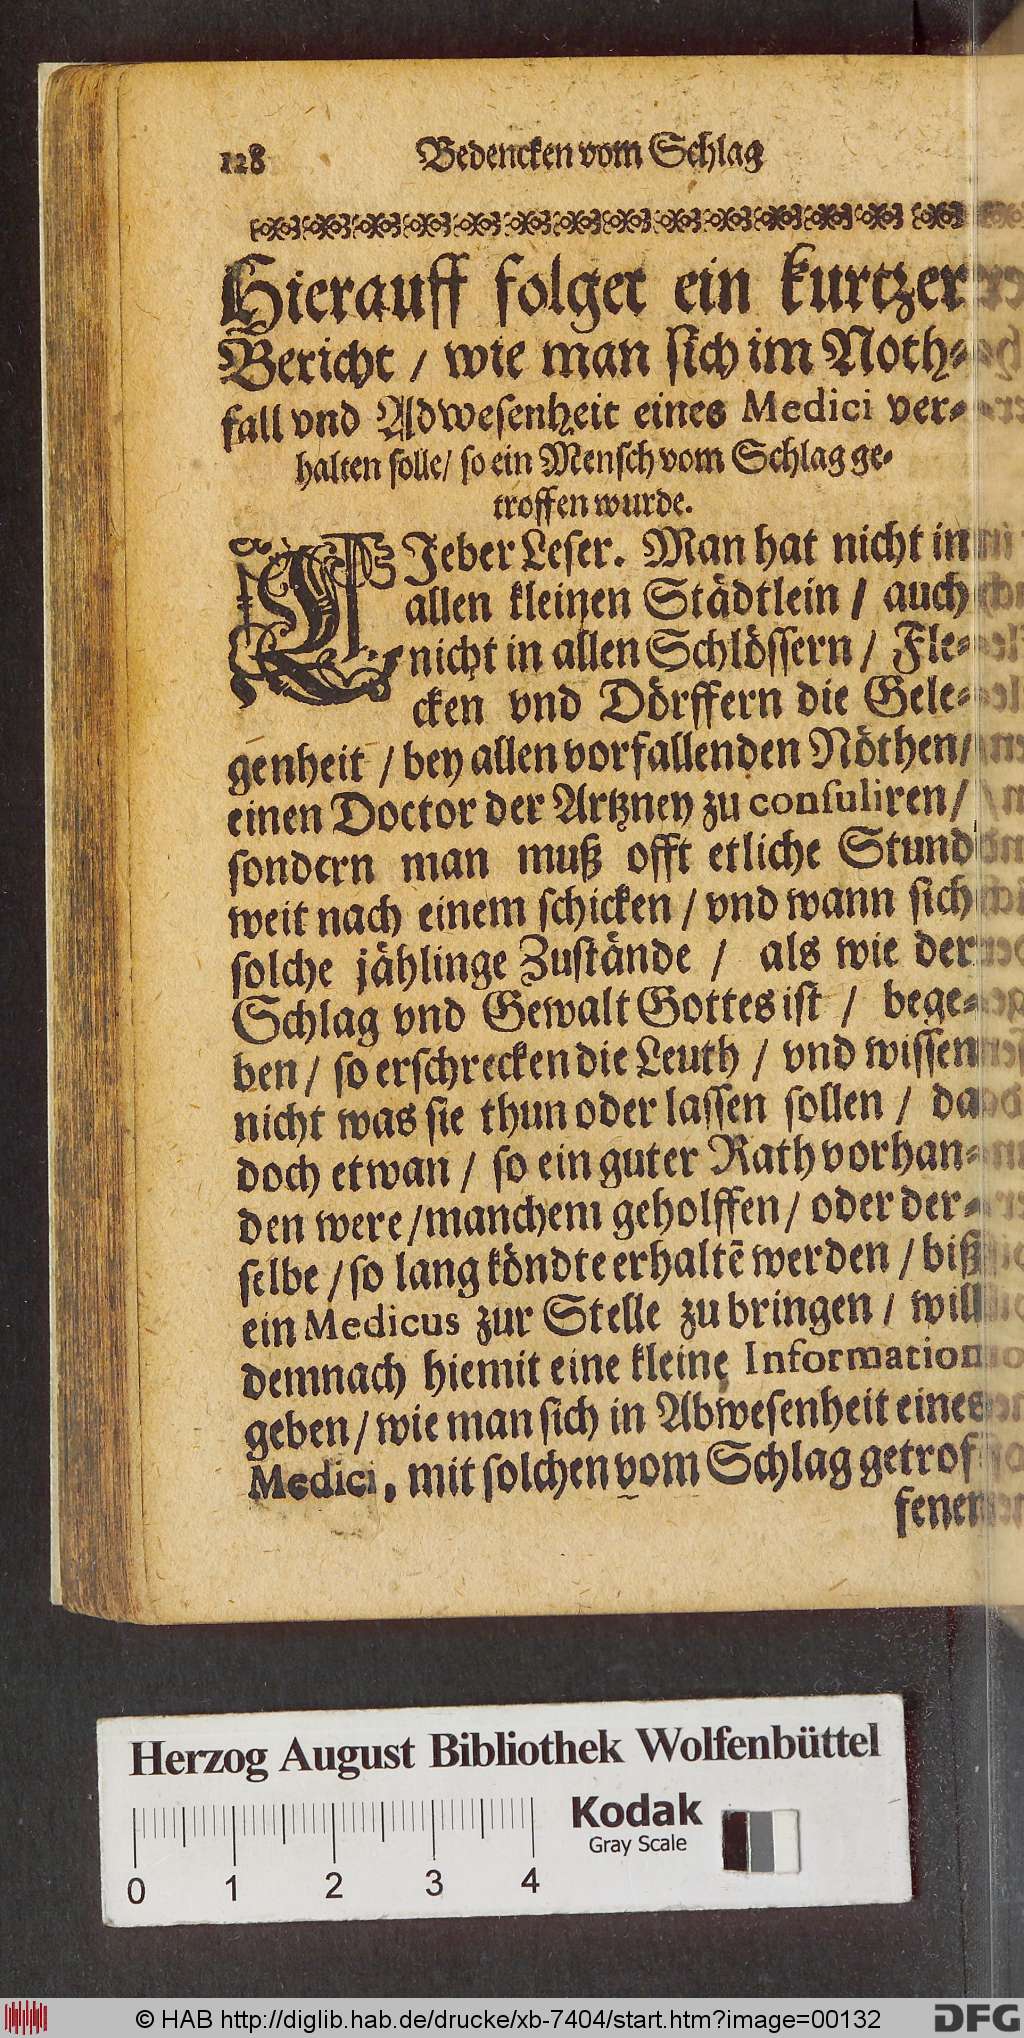 128 Bedencken vom Schlag
Hierauff folget ein kurtzer
Bericht / wie man sich im Noth-
fall vnd Abwesenheit eines Medici ver-
halten solle/ so ein Mensch vom Schlag ge-
troffen wurde.
LIeber Leser. Man hat nicht in
allen kleinen Städtlein / auch
nicht in allen Schlössern / Fle-
cken vnd Dörffern die Gele-
genheit / bey allen vorfallenden Nöthen/
einen Doctor der Artzney zu consuliren/
sondern man muß offt etliche Stund
weit nach einem schicken / vnd wann sich
solche jählinge Zustände / als wie der
Schlag vnd Gewalt Gottes ist / bege-
ben / so erschrecken die Leuth / vnd wissen
nicht was sie thun oder lassen sollen / da
doch etwan / so ein guter Rath vorhan-
den were /manchem geholffen / oder der-
selbe / so lang köndte erhaltē werden / biß
ein Medicus zur Stelle zu bringen / will
demnach hiemit eine kleine Information
geben / wie man sich in Abwesenheit eines
Medici, mit solchen vom Schlag getrof
fenen
Herzog August Bibliothek Wolfenbüttel
Kodak
Gray Scale
0 1 2 3 4
© HAB http://diglib.hab.de/drucke/xb-7404/start.htm?image=00132
DFG